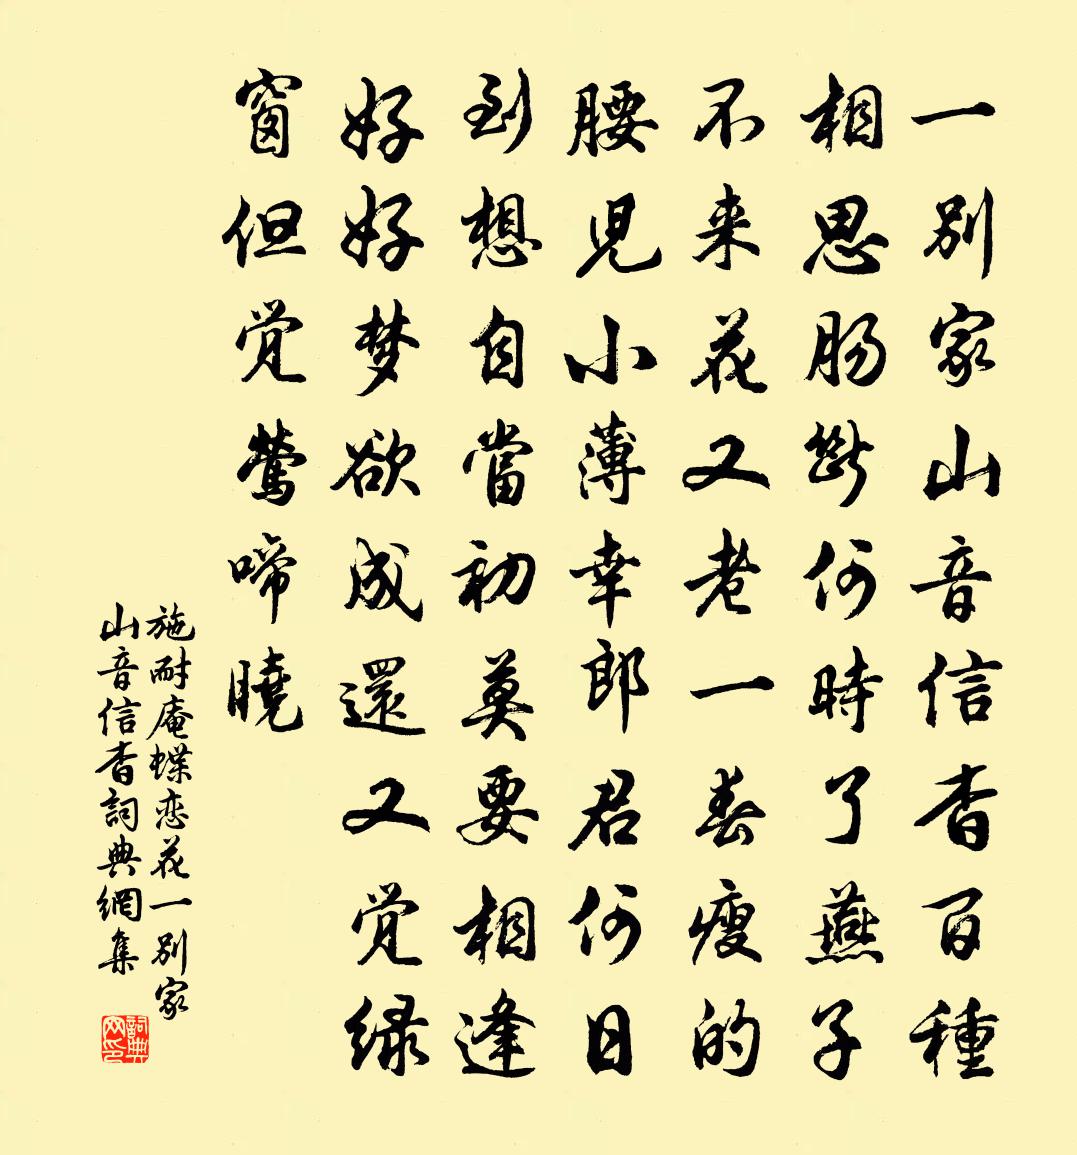 一别家山音信杳百種
相思肠斷何時了燕子
不来花又老一春瘦的
腰児小薄幸郎君何日
到想自當初莫要相逢
好好梦欲成還又觉绿
窗但觉鶯啼曉
施耐庵蝶恋花一别家
山音信杳詞典網集
詞典
网印